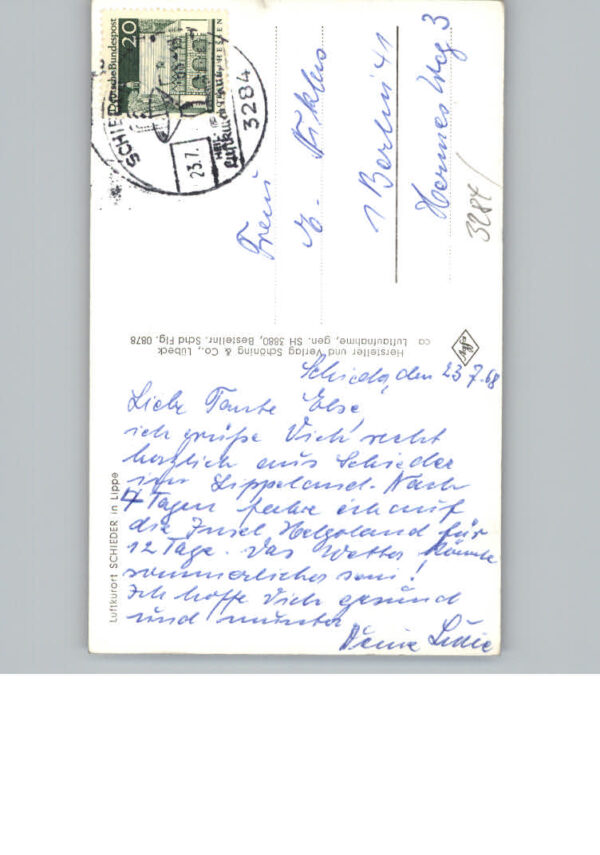 Deutsche Bundespost
20
HESSEN
SCHIEDER
3284
23.7.
Luftkurort
Frau
E.
1 Berlin 41
Hermes Weg 3
3284/
Hersteller und Verlag Schöning & Co., Lübeck
Luftaufnahme, gen. SH 3880, Bestellnr. Schd Flg. 0878
co
Agfa
Luftkurort SCHIEDER in Lippe
Schieder, den 23.7.68
Liebe Tante Else,
ich grüße Dich recht
herzlich aus Schieder
im Lippeland. Nach
4 Tagen fahre ich auf
die Insel Helgoland für
12 Tage. Das Wetter könnte
sommerlicher sein!
Ich hoffe Dich gesund
und munter
Deine